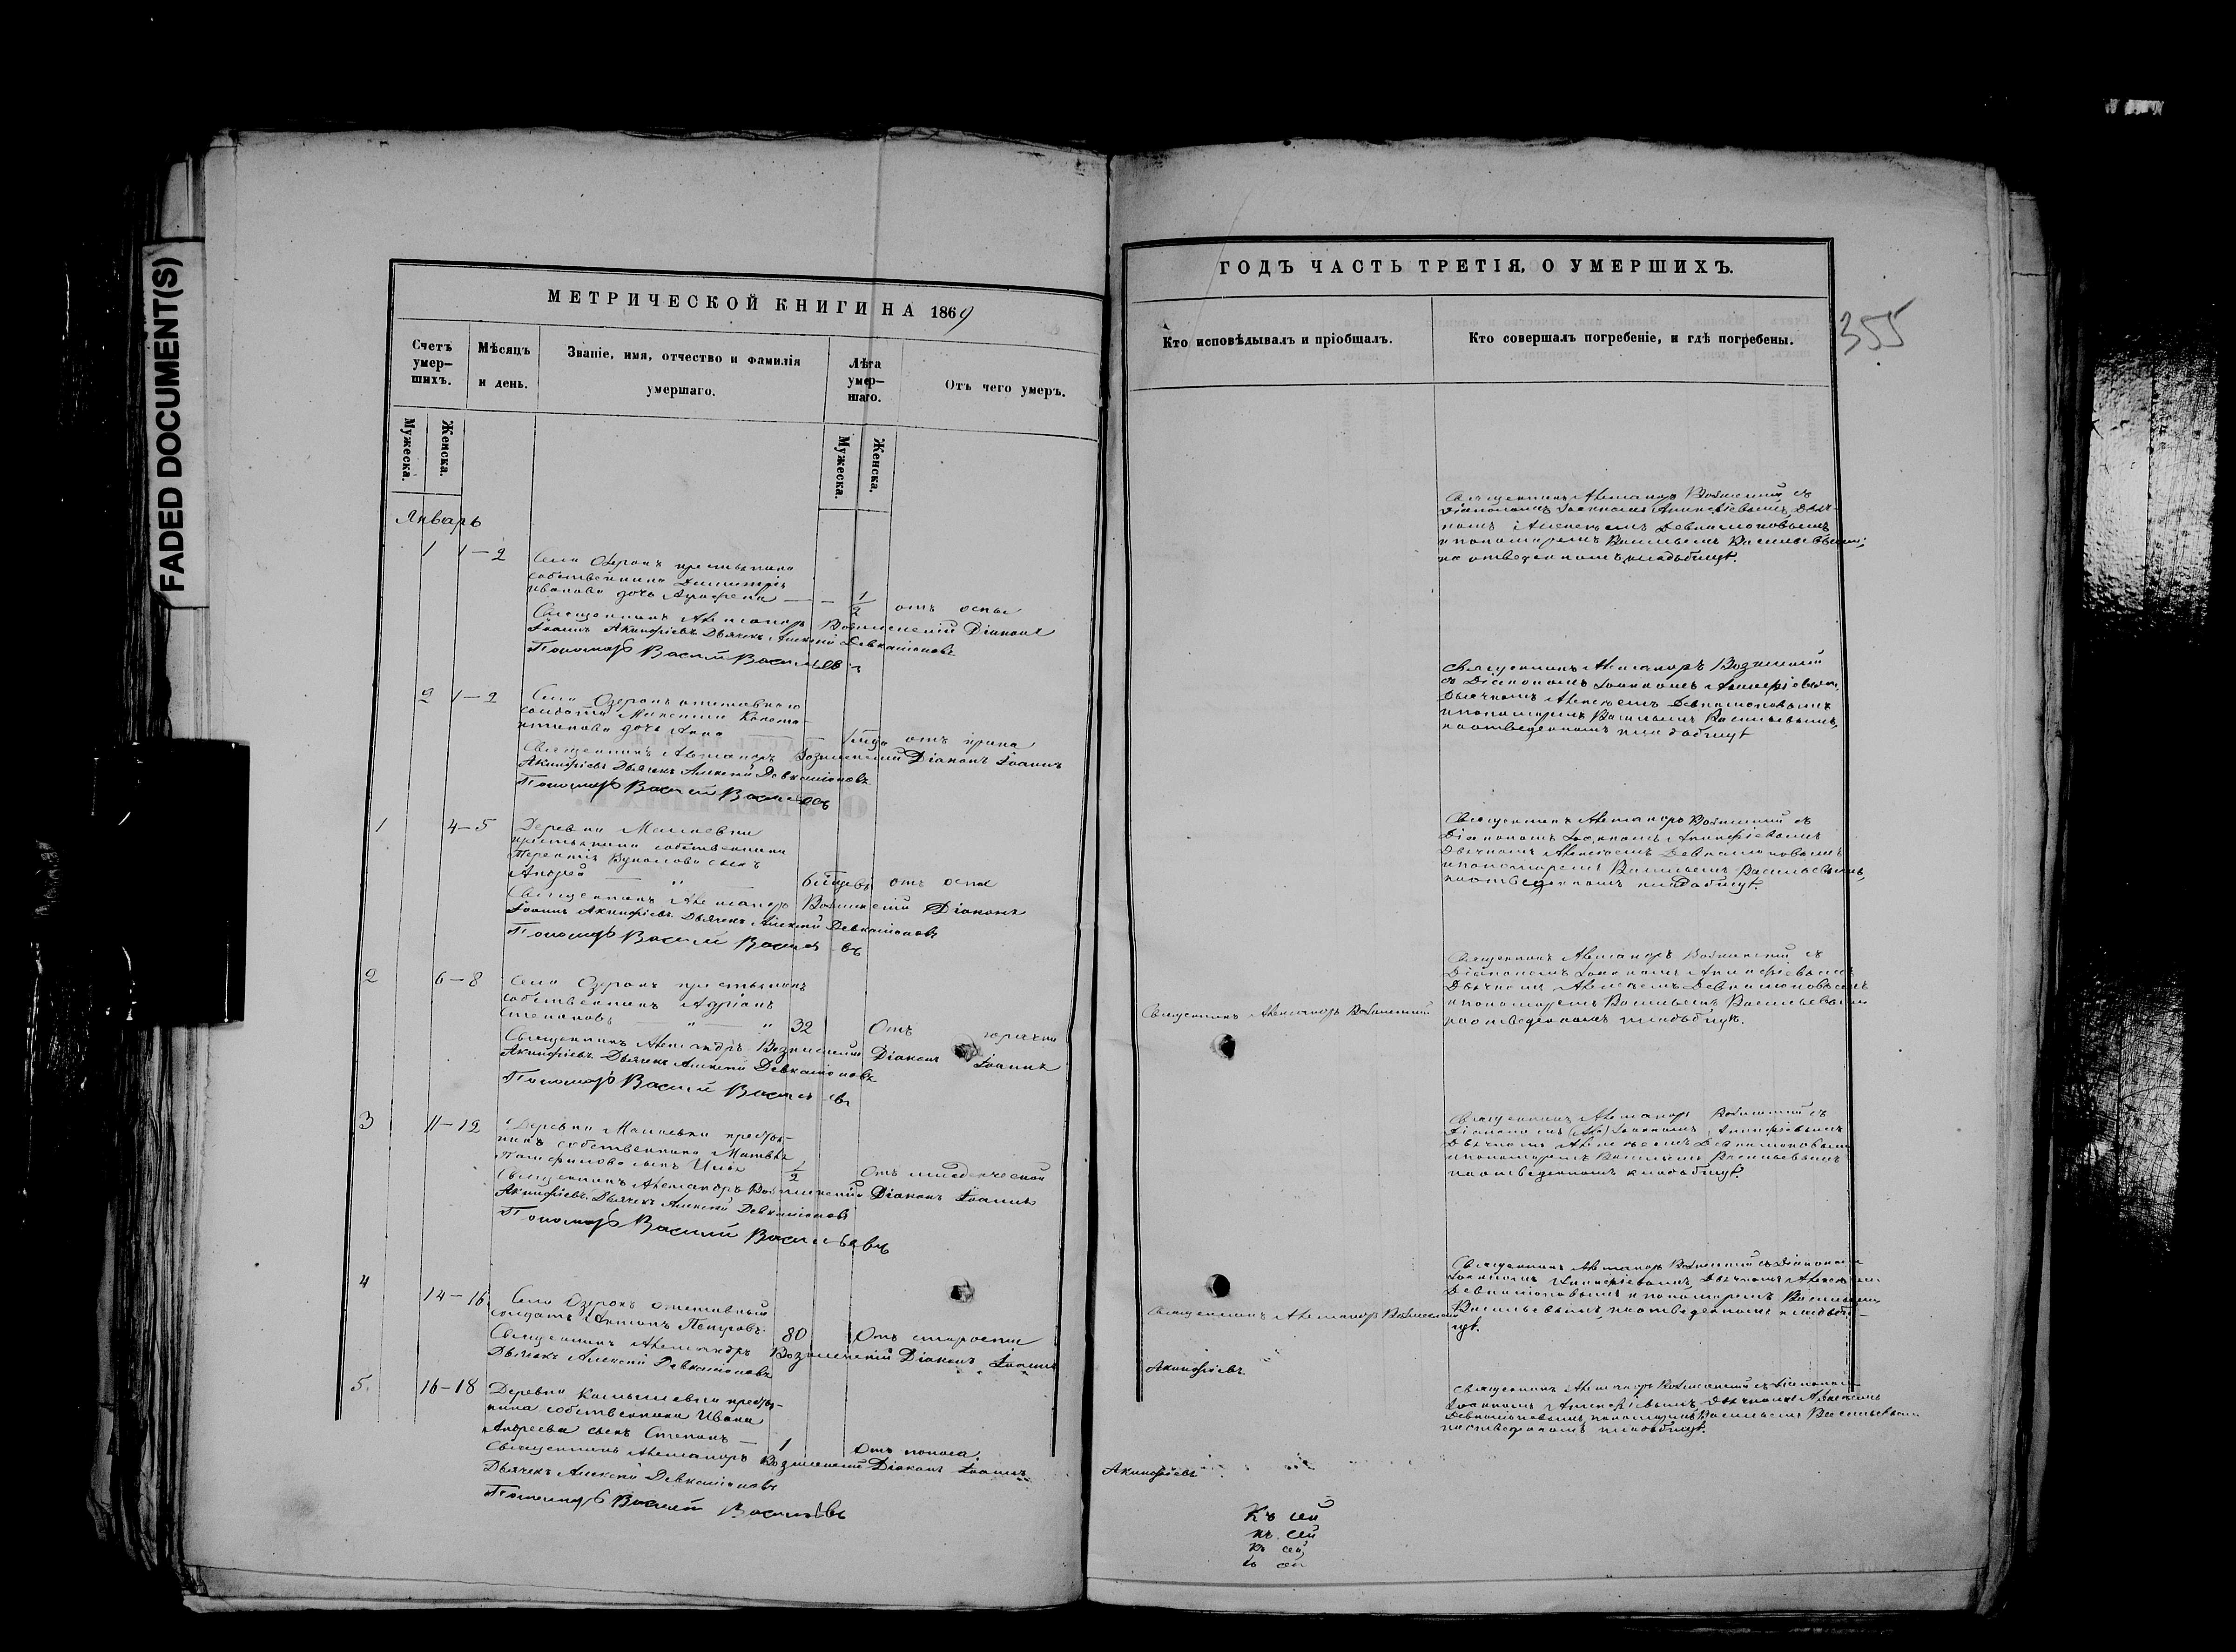 FADED DOCUMENT(S)
МЕТРИЧЕСКОЙ КНИГИ НА 1869
Счетъ умер-шихъ.
Мѣсяцъ и день.
Званіе, имя, отчество и фамилія умершаго.
Лѣта умер-шаго.
Отъ чего умеръ.
Мужеска.
Женска.
Мужеска.
Женска.
Январь
1 1-2 Села Озерокъ крестьянина
собственника Димитрія
Иванова дочь Агрофена 1/2 отъ оспы
Священникъ Александръ Вознесенскій Діаконъ
Іоаннъ Акинфіевъ Дьячекъ Алексѣй Девкаліоновъ
Пономарь Василій Васильевъ
2 1-2 Села Озерокъ отставнаго
солдата Конста-
нтинова дочь Анна отъ
Священникъ Александръ Вознесенскій Діаконъ Іоаннъ
Акинфіевъ Дьячекъ Алексѣй Девкаліоновъ
Пономарь Василій Васильевъ
1 4-5 Деревни
крестьянина собственника
Терентія сынъ
Андрей отъ оспы
Священникъ Александръ Вознесенскій Діаконъ
Іоаннъ Акинфіевъ Дьячекъ Алексѣй Девкаліоновъ
Пономарь Василій Васильевъ
2 6-8 Села Озерокъ крестьянинъ
собственникъ Адріанъ
Степановъ 32 Отъ горячки
Священникъ Александръ Вознесенскій Діаконъ Іоаннъ
Акинфіевъ Дьячекъ Алексѣй Девкаліоновъ
Пономарь Василій Васильевъ
3 11-12 Деревни кресть-
собственника Матвѣя
сынъ 1/2 Отъ младенческой
Священникъ Александръ Вознесенскій Діаконъ Іоаннъ
Акинфіевъ Дьячекъ Алексѣй Девкаліоновъ
Пономарь Василій Васильевъ
4 14-16 Села Озерокъ отставный
солдатъ Антонъ Петровъ 80 Отъ старости
Священникъ Александръ Вознесенскій Діаконъ Іоаннъ
Дьячекъ Алексѣй Девкаліоновъ
5. 16-18 Деревни кресть-
собственника Ивана
Андреева сынъ Степанъ 1 Отъ поноса
Священникъ Александръ Вознесенскій Діаконъ Іоаннъ
Дьячекъ Алексѣй Девкаліоновъ
Пономарь Василій Васильевъ
ГОДЪ ЧАСТЬ ТРЕТІЯ, О УМЕРШИХЪ.
355
Кто исповѣдывалъ и пріобщалъ.
Кто совершалъ погребеніе, и гдѣ погребены.
Священникъ Александръ Вознесенскій съ
Діакономъ Іоанномъ Акинфіевымъ, Дьяч-
комъ Алексѣемъ Девкаліоновымъ
и пономаремъ Васильемъ Васильевымъ,
на отведенномъ кладбищѣ.
Священникъ Александръ Вознесенскій
съ Діакономъ Іоанномъ Акинфіевымъ,
Дьячкомъ Алексѣемъ Девкаліоновымъ
и пономаремъ Васильемъ Васильевымъ,
на отведенномъ кладбищѣ
Священникъ Александръ Вознесенскій съ
Діакономъ Іоанномъ Акинфіевымъ
Дьячкомъ Алексѣемъ Девкаліоновымъ
и пономаремъ Васильемъ Васильевымъ,
на отведенномъ кладбищѣ.
Священникъ Александръ Вознесенскій
Священникъ Александръ Вознесенскій съ
Діакономъ Іоанномъ Акинфіевымъ
Дьячкомъ Алексѣемъ Девкаліоновымъ
и пономаремъ Васильемъ Васильевымъ
на отведенномъ кладбищѣ.
Священникъ Александръ Вознесенскій съ
Діакономъ Іоанномъ Акинфіевымъ
Дьячкомъ Алексѣемъ Девкаліоновымъ
и пономаремъ Васильемъ Васильевымъ
на отведенномъ кладбищѣ.
Священникъ Александръ Вознесенскій
Акинфіевъ.
Священникъ Александръ Вознесенскій съ Діакономъ
Іоанномъ Акинфіевымъ, Дьячкомъ Алексѣемъ
Девкаліоновымъ и пономаремъ Васильемъ
Васильевымъ, на отведенномъ кладби-
щѣ.
Священникъ Александръ Вознесенскій съ Діакономъ
Іоанномъ Акинфіевымъ Дьячкомъ Алексѣемъ
Девкаліоновымъ, пономаремъ Васильемъ Васильевымъ
на отведенномъ кладбищѣ.
Акинфіевъ
Къ сей
къ сей
къ сей
къ сей